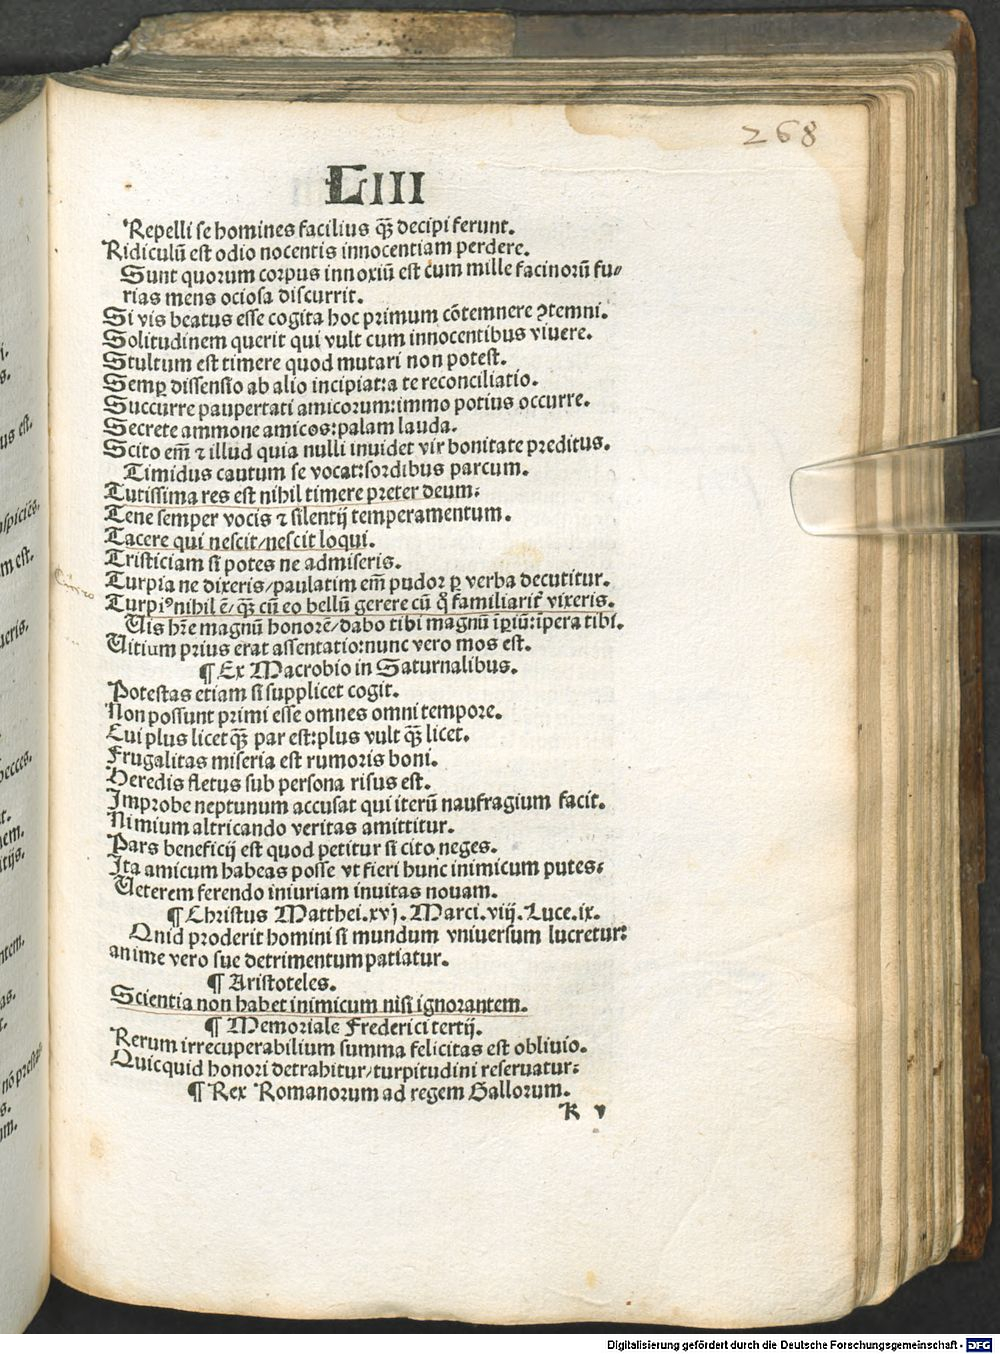 268
LIII
Repelli se homines facilius qȝ decipi ferunt.
Ridiculū est odio nocentis innocentiam perdere.
Sunt quorum corpus innoxiū est cum mille facinorū fu⸗
rias mens ociosa discurrit.
Si vis beatus esse cogita hoc primum cōtemnere ꝯtemni.
Solitudinem querit qui vult cum innocentibus viuere.
Stultum est timere quod mutari non potest.
Semꝑ dissensio ab alio incipiat:a te reconciliatio.
Succurre paupertati amicorum:immo potius occurre.
Secrete ammone amicos:palam lauda.
Scito em̄ ⁊ illud quia nulli inuidet vir bonitate preditus.
Timidus cautum se vocat:sordibus parcum.
Tutissima res est nihil timere preter deum:
Tene semper vocis ⁊ silentij temperamentum.
Tacere qui nescit/nescit loqui.
Tristiciam si potes ne admiseris.
Turpia ne dixeris/paulatim em̄ pudor ꝑ verba decutitur.
Turpiꝰ nihil ē/qȝ cū eo bellū gerere cū q̊ familiarit̄ vixeris.
Uis hr̄e magnū honorē/dabo tibi magnū īꝑiū:īpera tibi.
Uitium prius erat assentatio:nunc vero mos est.
¶ Ex Macrobio in Saturnalibus.
Potestas etiam si supplicet cogit.
Non possunt primi esse omnes omni tempore.
Cui plus licet qȝ par est:plus vult qȝ licet.
Frugalitas miseria est rumoris boni.
Heredis fletus sub persona risus est.
Improbe neptunum accusat qui iterū naufragium facit.
Nimium altricando veritas amittitur.
Pars beneficij est quod petitur si cito neges.
Ita amicum habeas posse vt fieri hunc inimicum putes:
Ueterem ferendo iniuriam inuitas nouam.
¶ Christus Matthei.xvj.Marci.viij.Luce.ix.
Quid proderit homini si mundum vniuersum lucretur:
anime vero sue detrimentum patiatur.
¶ Aristoteles.
Scientia non habet inimicum nisi ignorantem.
¶ Memoriale Frederici tertij.
Rerum irrecuperabilium summa felicitas est obliuio.
Quicquid honori detrahitur/turpitudini reseruatur:
¶ Rex Romanorum ad regem Gallorum.
K v
Digitalisierung gefördert durch die Deutsche Forschungsgemeinschaft - DFG